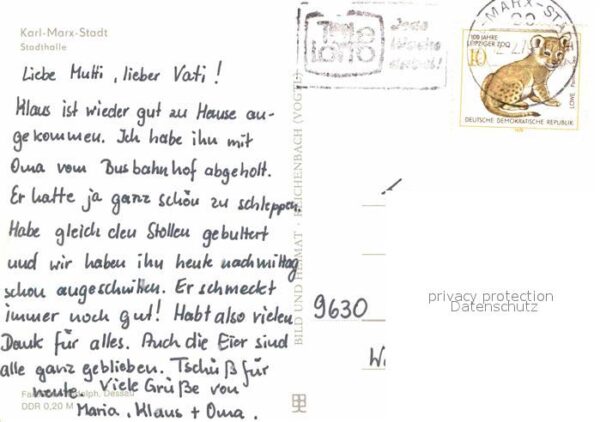 Karl-Marx-Stadt
Stadthalle
Liebe Mutti, lieber Vati!
Klaus ist wieder gut zu Hause an-
gekommen. Ich habe ihn mit
Oma vom Busbahnhof abgeholt.
Er hatte ja ganz schön zu schleppen.
Habe gleich den Stollen gebuttert
und wir haben ihn heute nachmittag
schon angeschnitten. Er schmeckt
immer noch gut! Habt also vielen
Dank für alles. Auch die Eier sind
alle ganz geblieben. Tschüß für
heute. Viele Grüße von
Maria, Klaus + Oma.
Dessau
DDR 0,20 M
BILD UND HEIMAT · REICHENBACH (VOGTL)
Tele
LOTTO
Jede
Woche
-MARX-STA
100 JAHRE
LEIPZIGER ZOO
10
LÖWE
DEUTSCHE DEMOKRATISCHE REPUBLIK
9630
privacy protection
Datenschutz